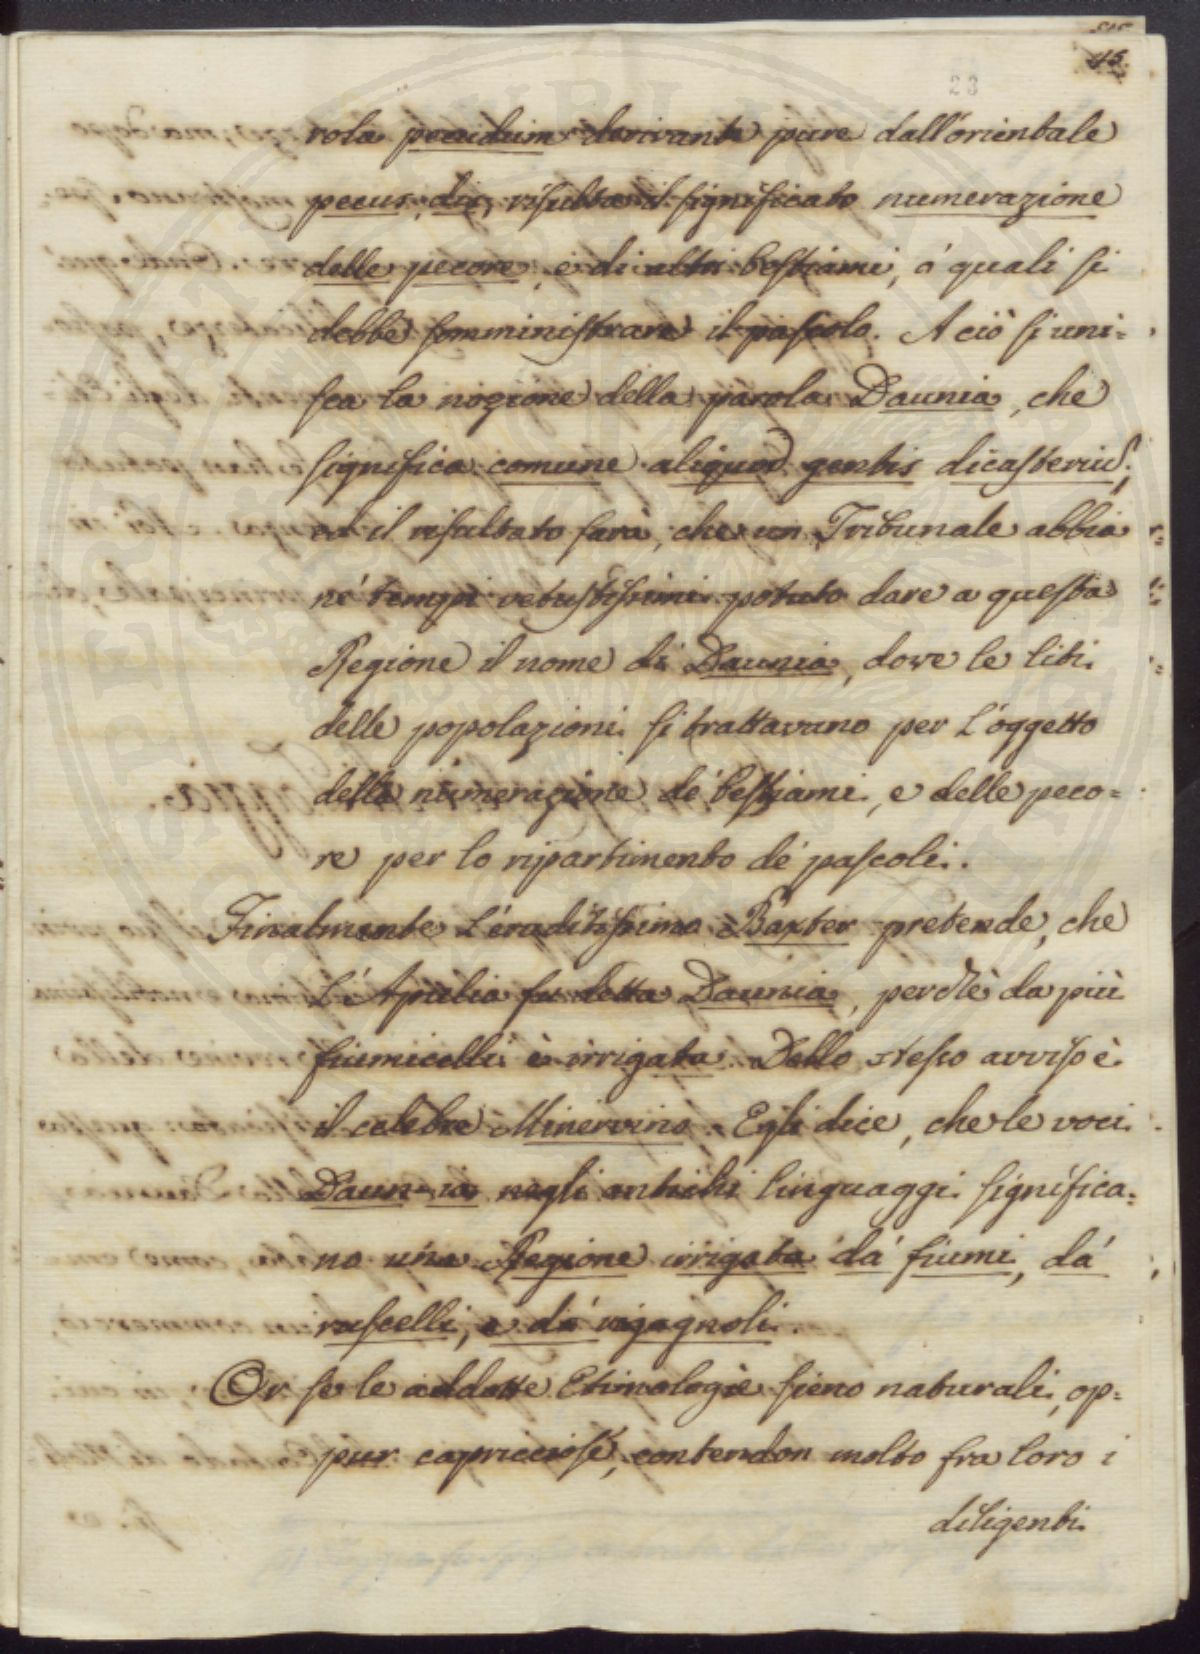 15.
23
rola pecudum derivante pure dall'orientale
pecus, dis, risulta il significato numerazione
delle pecore, e di altri bestiami, a' quali si
debbe somministrare il pascolo. A ciò si uni=
sca la nozione della parola Daunia, che
significa comune aliquod gentis dicasterium;
ed il risultato sarà, che un Tribunale abbia
ne' tempi vetustissimi potuto dare a questa
Regione il nome di Daunia, dove le liti
delle popolazioni si trattavano per l'oggetto
della numerazione de' bestiami, e delle peco=
re per lo ripartimento de' pascoli.
Finalmente l'eruditissimo Baxter pretende, che
l'Apulia fu detta Daunia, perchè da più
fiumicelli è irrigata. Dello stesso avviso è
il celebre Minervino. Egli dice, che le voci
Daun-ia negli antichi linguaggi significa=
no una Regione irrigata da' fiumi, da'
ruscelli, e da' rigagnoli.
Or se le addotte Etimologie sieno naturali, op=
pur capricciose, contendon molto fra loro i
diligenti